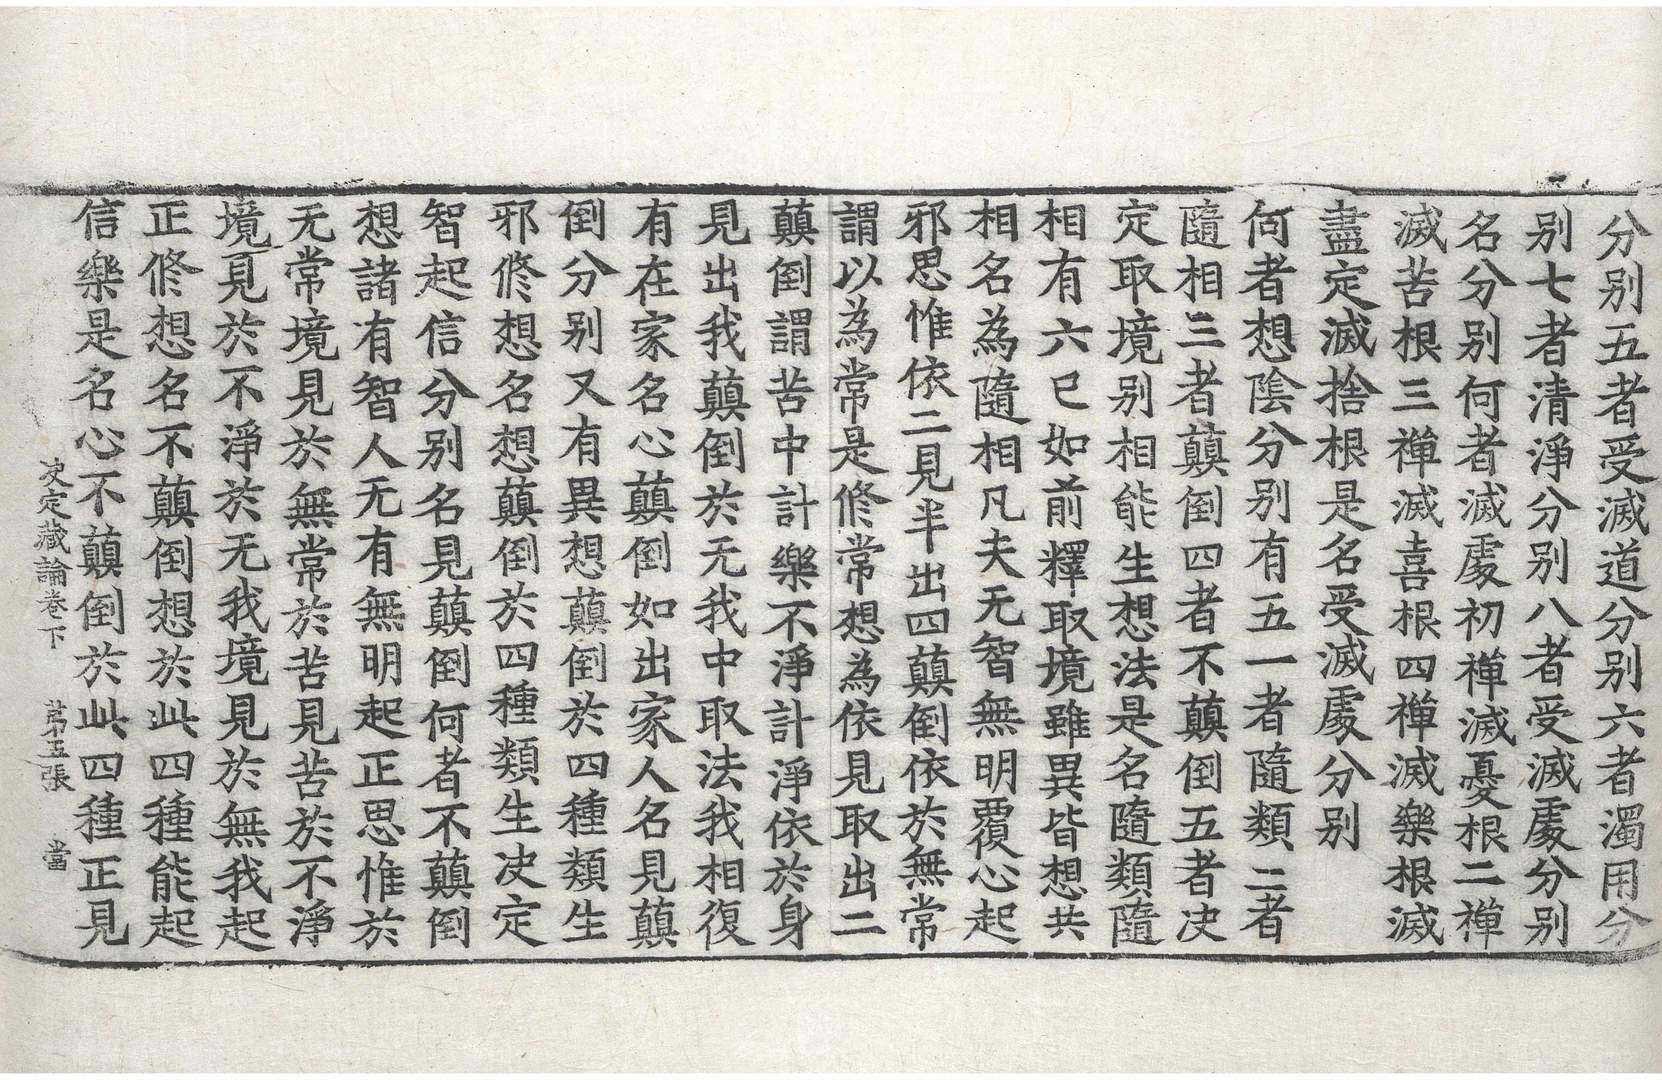 分别五者受滅道分别六者濁用分
别七者清淨分别八者受滅處分别
名分别何者滅處初禪滅憂根二禪
滅苦根三禪滅喜根四禪滅樂根滅
盡定滅捨根是名受滅處分别
何者想陰分别有五一者隨類二者
隨相三者顛倒四者不顛倒五者决
定取境别相能生想法是名隨類隨
相有六已如前釋取境雖異皆想共
相名為隨相凡夫无智無明覆心起
邪思惟依二見半出四顛倒依於無常
謂以為常是修常想為依見取出二
顛倒謂苦中計樂不淨計淨依於身
見出我顛倒於无我中取法我相復
有在家名心顛倒如出家人名見顛
倒分别又有異想顛倒於四種類生
邪修想名想顛倒於四種類生决定
智起信分别名見顛倒何者不顛倒
想諸有智人无有無明起正思惟於
无常境見於無常於苦見苦於不淨
境見於不淨於无我境見於無我起
正修想名不顛倒想於此四種能起
信樂是名心不顛倒於此四種正見
决定藏論卷下　第五張　當